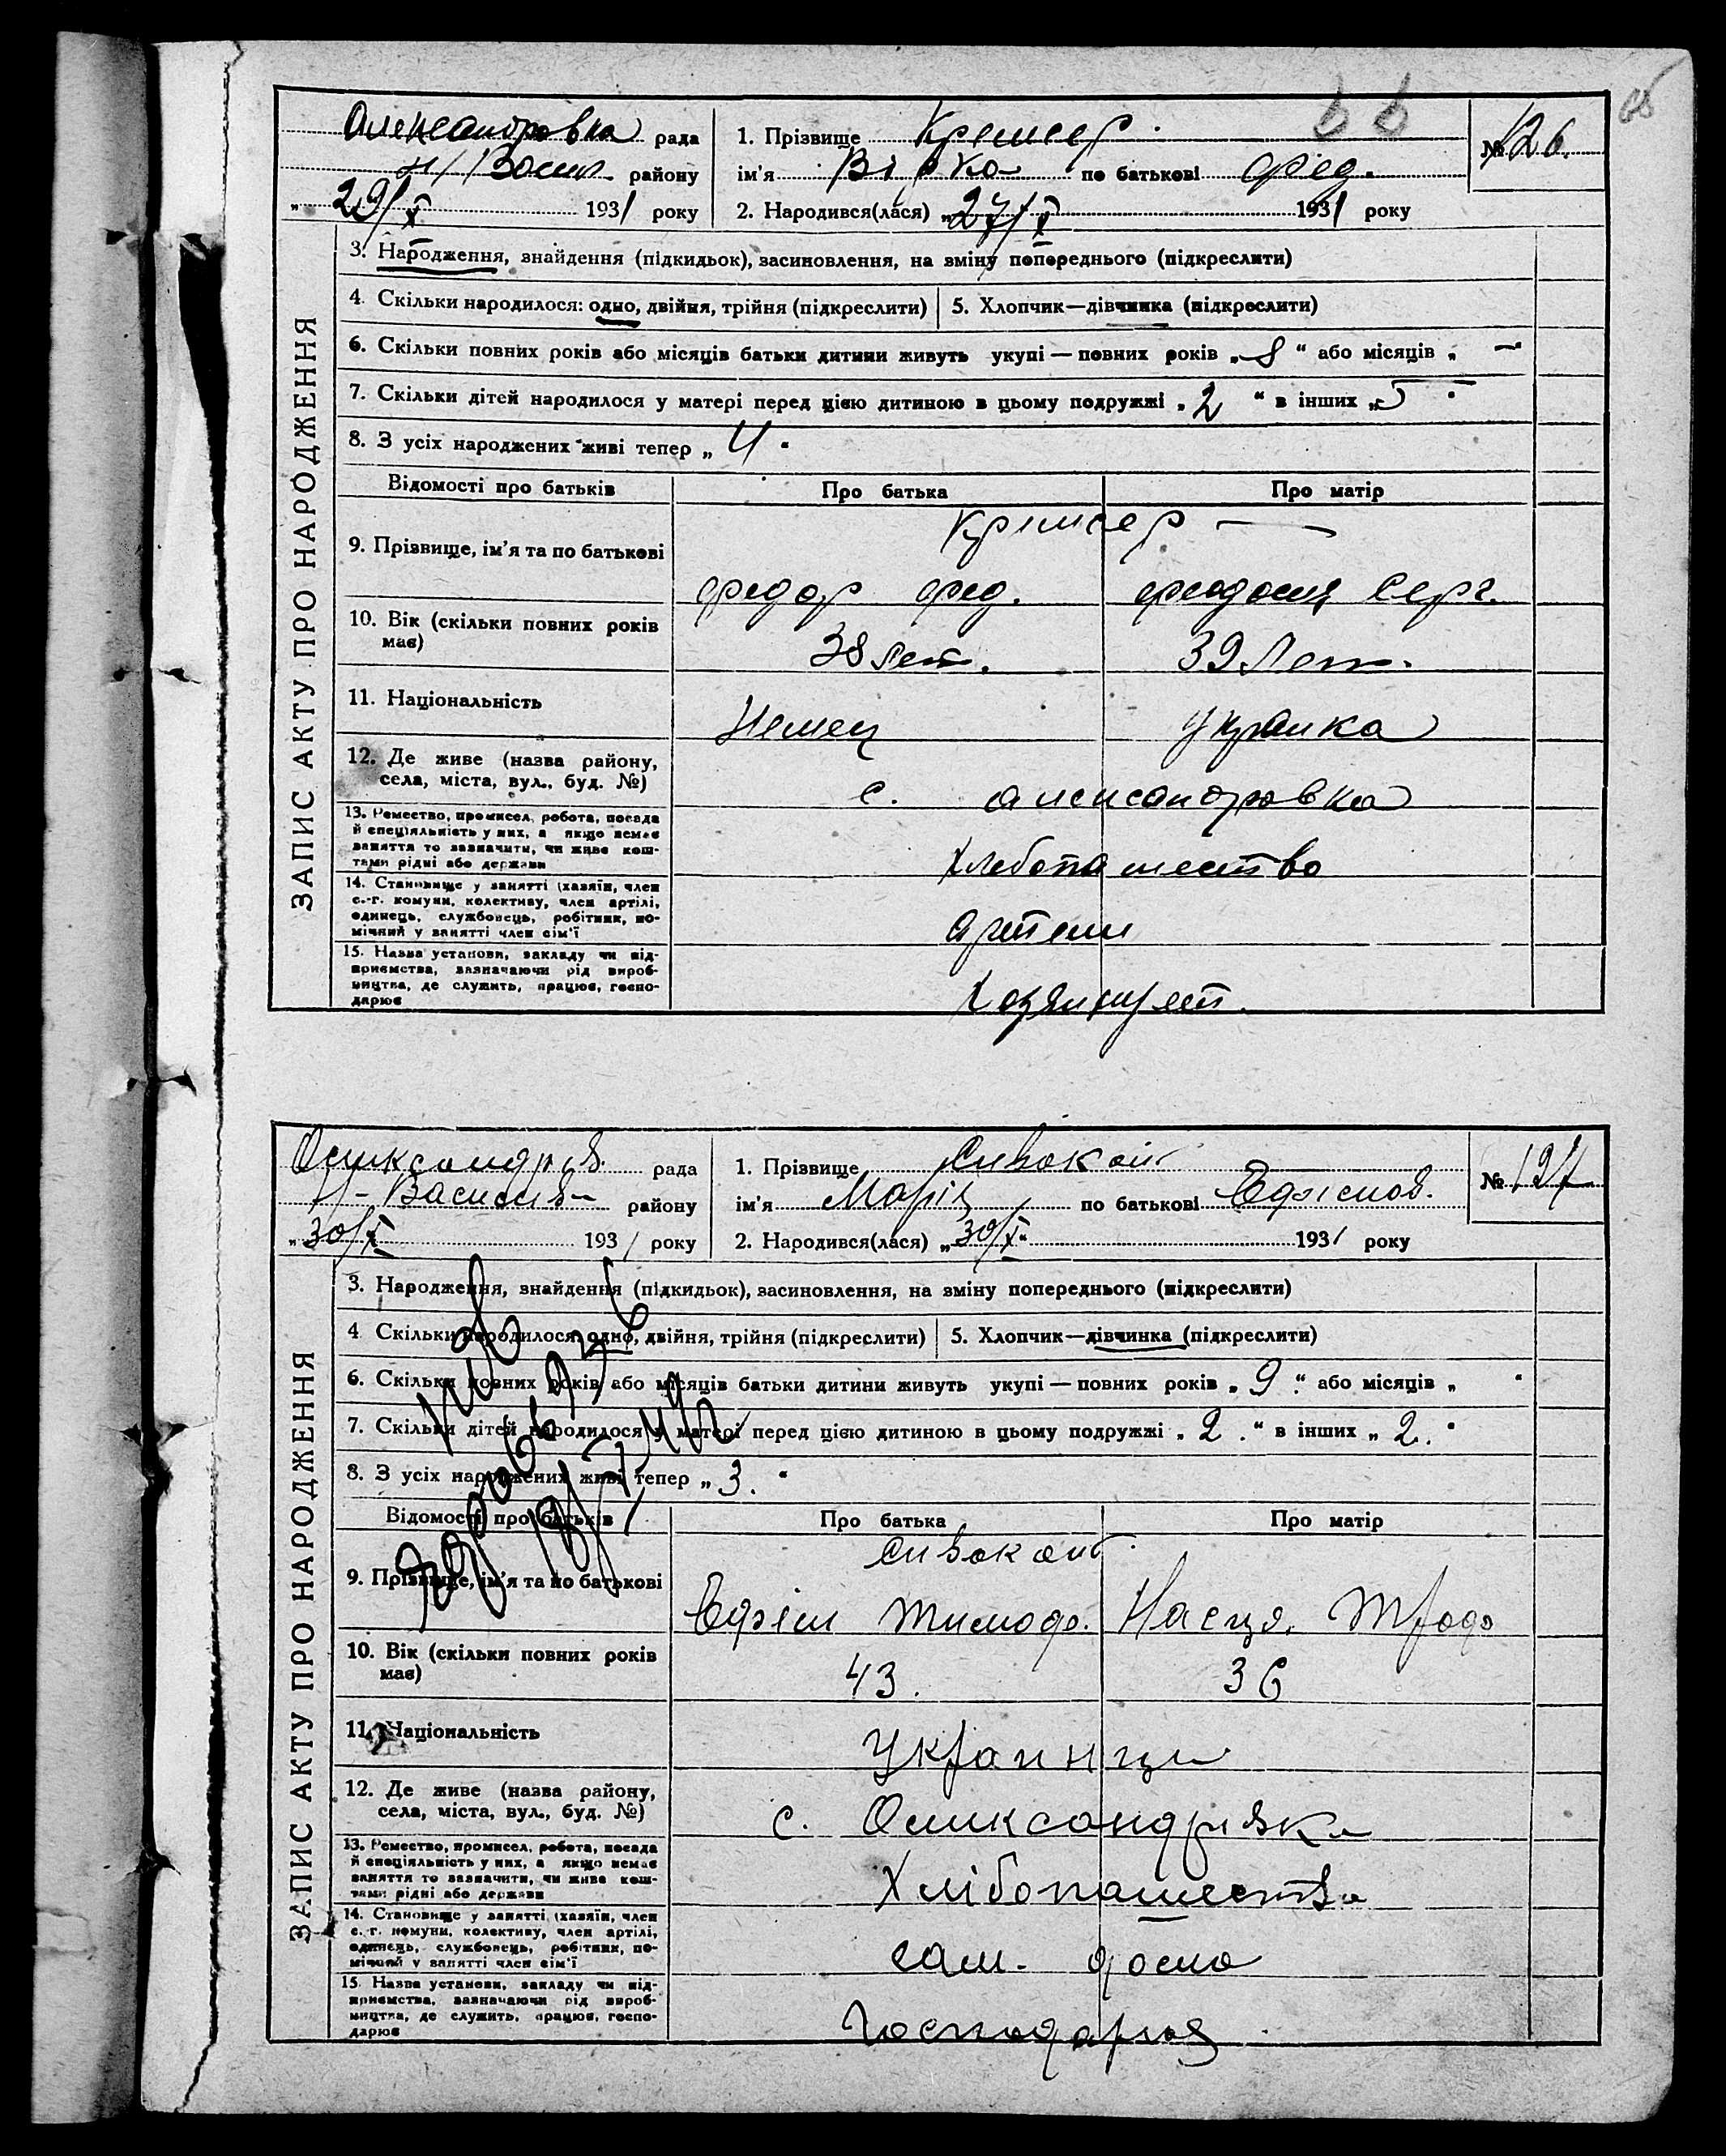 Александровка рада
Н/Васил. району
„ 29/X 1931 року
1. Прізвище Кремсер
ім'я Вірка по батькові Фед.
2. Народився(лася) „27/X 1931 року
№ 126.
ЗАПИС АКТУ ПРО НАРОДЖЕННЯ
3. Народження, знайдення (підкидьок), засиновлення, на зміну попереднього (підкреслити)
4. Скільки народилося: одно, двійня, трійня (підкреслити) 5. Хлопчик—дівчинка (підкреслити)
6. Скільки повних років або місяців батьки дитини живуть укупі — повних років „ 8 “ або місяців „ — “
7. Скільки дітей народилося у матері перед цією дитиною в цьому подружжі „ 2 “ в інших „ 5 “
8. З усіх народжених живі тепер „ 4 “
Відомості про батьків Про батька Про матір
9. Прізвище, ім'я та по батькові
Кримсер —
Федор Фед. Феодосия Серг.
10. Вік (скільки повних років має)
38 лет. 39 лет.
11. Національність
Немец Украинка
12. Де живе (назва району,
села, міста, вул., буд. №)
с. Александровка
13. Ремество, промисел, робота, посада
й спеціяльність у них, а якщо немає
заняття то зазначити, чи живе кош-
тами рідні або держави
Хлебопашество
14. Становище у занятті (хазяїн, член
с.-г. комуни, колективу, член артілі,
одинець, службовець, робітник, по-
мічний у занятті член сім'ї
Артели
15. Назва установи, закладу чи під-
приємства, зазначаючи рід вироб-
ництва, де служить, працює, госпо-
дарює
Хозяинует.
Оликсандрів. рада
Н-Василів- району
„ 30/X 1931 року
1. Прізвище Сивоконь
ім'я Марія по батькові Ефімов.
2. Народився(лася) „30/X“ 1931 року
№ 127
ЗАПИС АКТУ ПРО НАРОДЖЕННЯ
3. Народження, знайдення (підкидьок), засиновлення, на зміну попереднього (підкреслити)
4. Скільки народилося: одно, двійня, трійня (підкреслити) 5. Хлопчик—дівчинка (підкреслити)
6. Скільки повних років або місяців батьки дитини живуть укупі — повних років „ 9 “ або місяців „ “
7. Скільки дітей народилося у матері перед цією дитиною в цьому подружжі „ 2. “ в інших „ 2. “
8. З усіх народжених живі тепер „ 3. “
Відомості про батьків Про батька Про матір
9. Прізвище, ім'я та по батькові
Сивоконь
Ефім Тимоф. Насця. Троф
10. Вік (скільки повних років має)
43. 36
11. Національність
Украинци
12. Де живе (назва району,
села, міста, вул., буд. №)
с. Оликсандривка
13. Ремество, промисел, робота, посада
й спеціяльність у них, а якщо немає
заняття то зазначити, чи живе кош-
тами рідні або держави
Хлібопашество
14. Становище у занятті (хазяїн, член
с.-г. комуни, колективу, член артілі,
одинець, службовець, робітник, по-
мічний у занятті член сім'ї
сам.
15. Назва установи, закладу чи під-
приємства, зазначаючи рід вироб-
ництва, де служить, працює, госпо-
дарює
Господарює